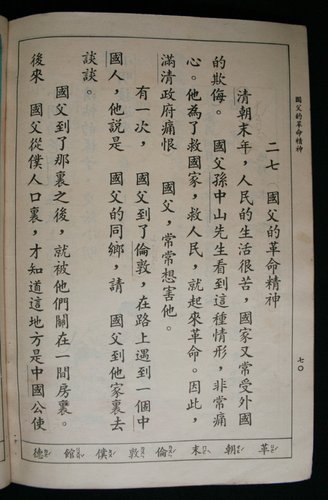 國父的革命精神
七〇
二七　國父的革命精神
清朝末年，人民的生活很苦，國家又常受外國
的欺侮。　國父孫中山先生看到這種情形，非常痛
心。他為了救國家，救人民，就起來革命。因此，
滿清政府痛恨　國父，常常想害他。
有一次，　國父到了倫敦，在路上遇到一個中
國人，他說是　國父的同鄉，請　國父到他家裏去
談談。
國父到了那裏之後，就被他們關在一間房裏。
後來　國父從僕人口裏，才知道這地方是中國公使
革　朝　末　倫　敦　僕　館　德